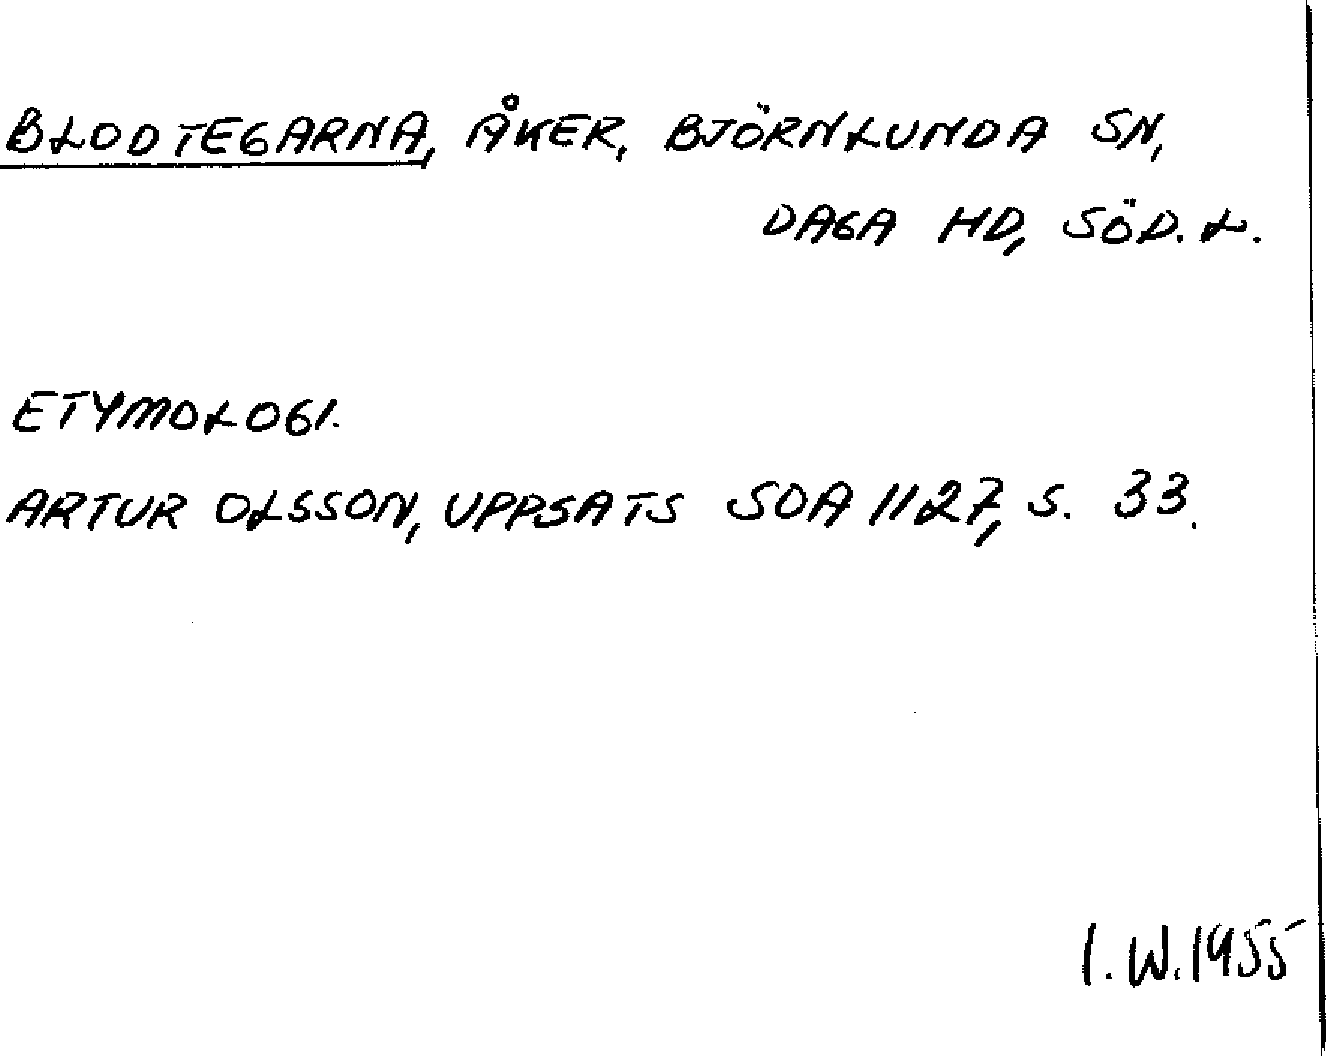 BLODTEGARNA, ÅKER, BJÖRNLUNDA SN,
DAGA HD, SÖD. L.
ETYMOLOGI.
ARTUR OLSSON, UPPSATS SOA 1127, S. 33.
I. W. 1955